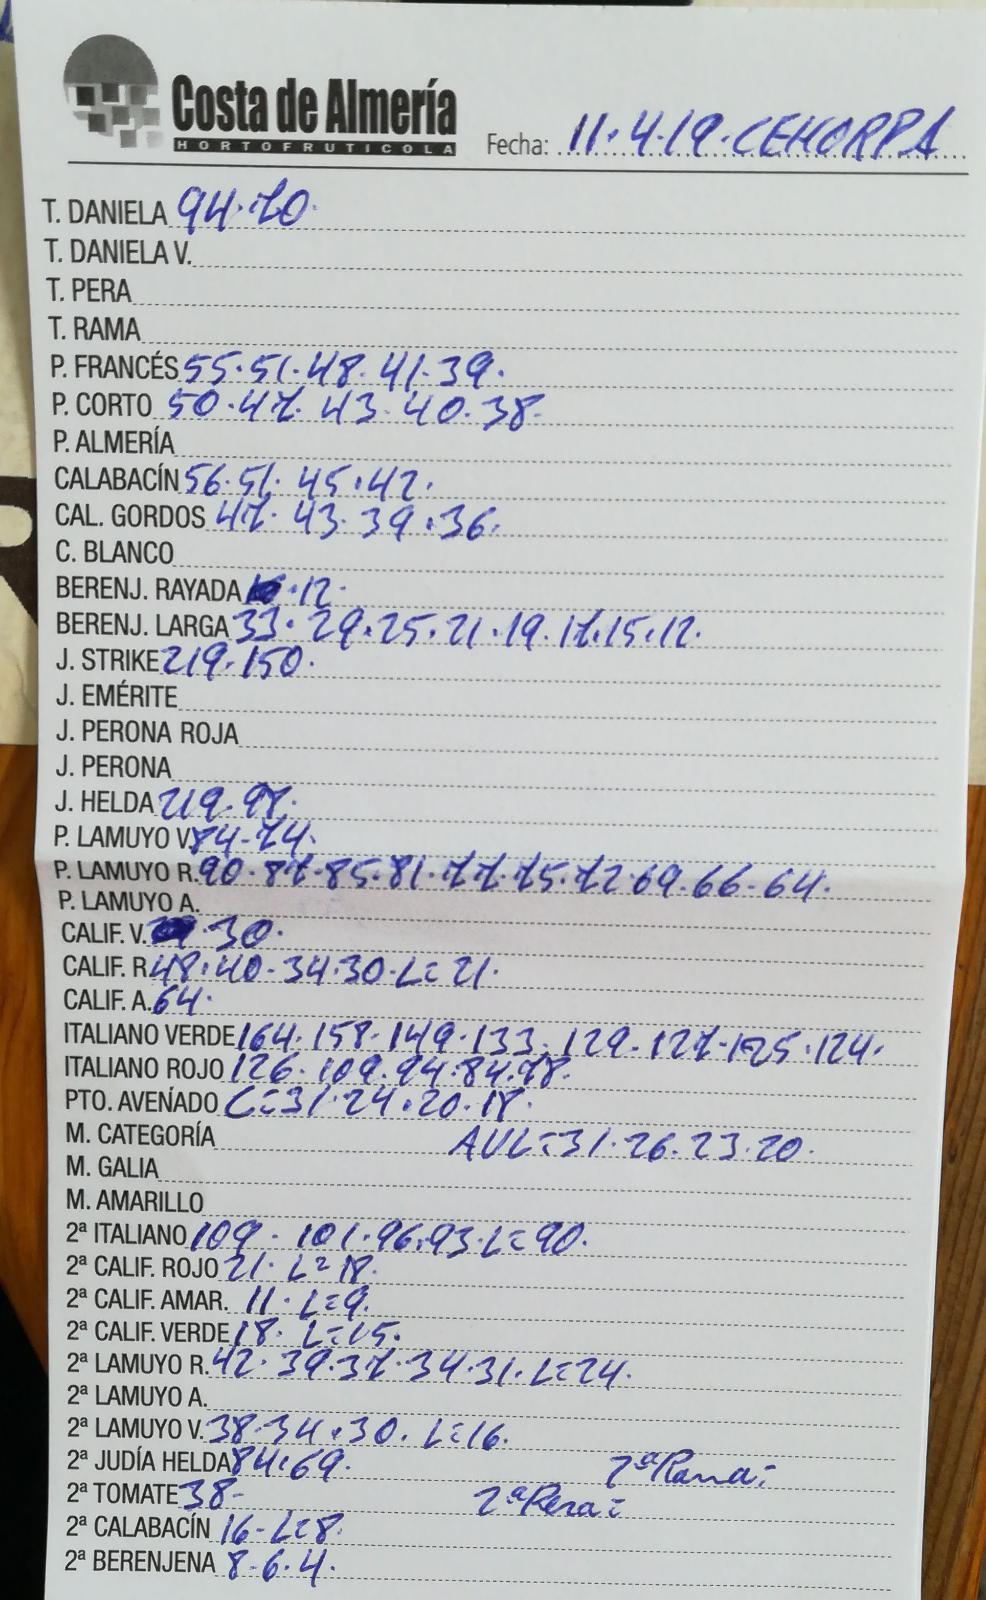 Costa de Almería
HORTOFRUTICOLA
Fecha: 11.4.19.CEHORPA
T. DANIELA 94.70.
T. DANIELA V.
T. PERA
T. RAMA
P. FRANCÉS 55.51.48.41.39.
P. CORTO 50.47.43.40.38.
P. ALMERÍA
CALABACÍN 56.51.45.42.
CAL. GORDOS 47.43.39.36.
C. BLANCO
BERENJ. RAYADA .12.
BERENJ. LARGA 33.29.25.21.19.17.15.12.
J. STRIKE 219.150.
J. EMÉRITE
J. PERONA ROJA
J. PERONA
J. HELDA 219.98.
P. LAMUYO V. 84-74.
P. LAMUYO R. 90.87.85.81.77.75.72.69.66.64.
P. LAMUYO A.
CALIF. V. .30.
CALIF. R 48.40.34.30.L=21.
CALIF. A. 64.
ITALIANO VERDE 164.158.149.133.129.127.125.124.
ITALIANO ROJO 126.109.94.84.78.
PTO. AVEÑADO C=31.24.20.18.
M. CATEGORÍA AVL=31.26.23.20.
M. GALIA
M. AMARILLO
2ª ITALIANO 109.101.96.93.L=90.
2ª CALIF. ROJO 21.L=18.
2ª CALIF. AMAR. 11.L=9.
2ª CALIF. VERDE 18.L=15.
2ª LAMUYO R. 42.39.37.34.31.L=24.
2ª LAMUYO A.
2ª LAMUYO V. 38.34.30.L=16.
2ª JUDÍA HELDA 84.69. 2ªRama=
2ª TOMATE 38- 2ªPera=
2ª CALABACÍN 16-L=8.
2ª BERENJENA 8.6.4.